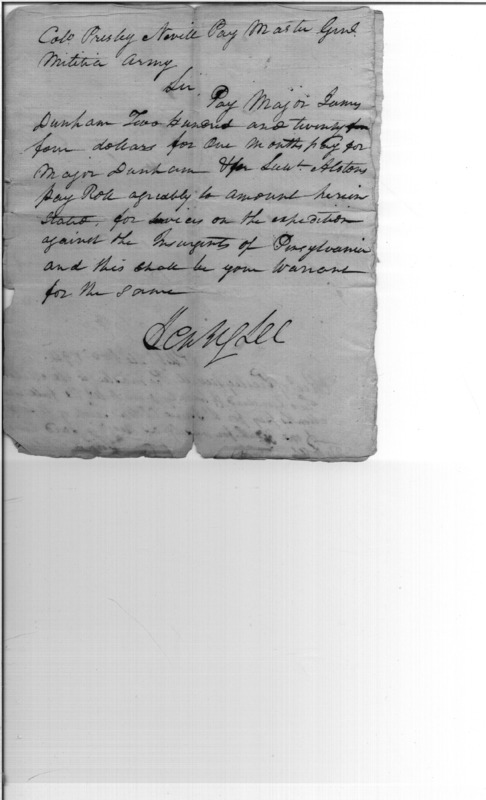 Colo. Presley Nevill Pay Master Genl.
Militia Army
Sir
Pay Major James
Dunham Two Hundred and twenty
four dollars for One Months pay for
Major Dunham & for Lieut. Alstons
pay Role agreably to amount herein
Stated, for Services on the expedition
against the Insurgents of Pensylvania
and this shall be your Warrant
for the Same
Henry Lee